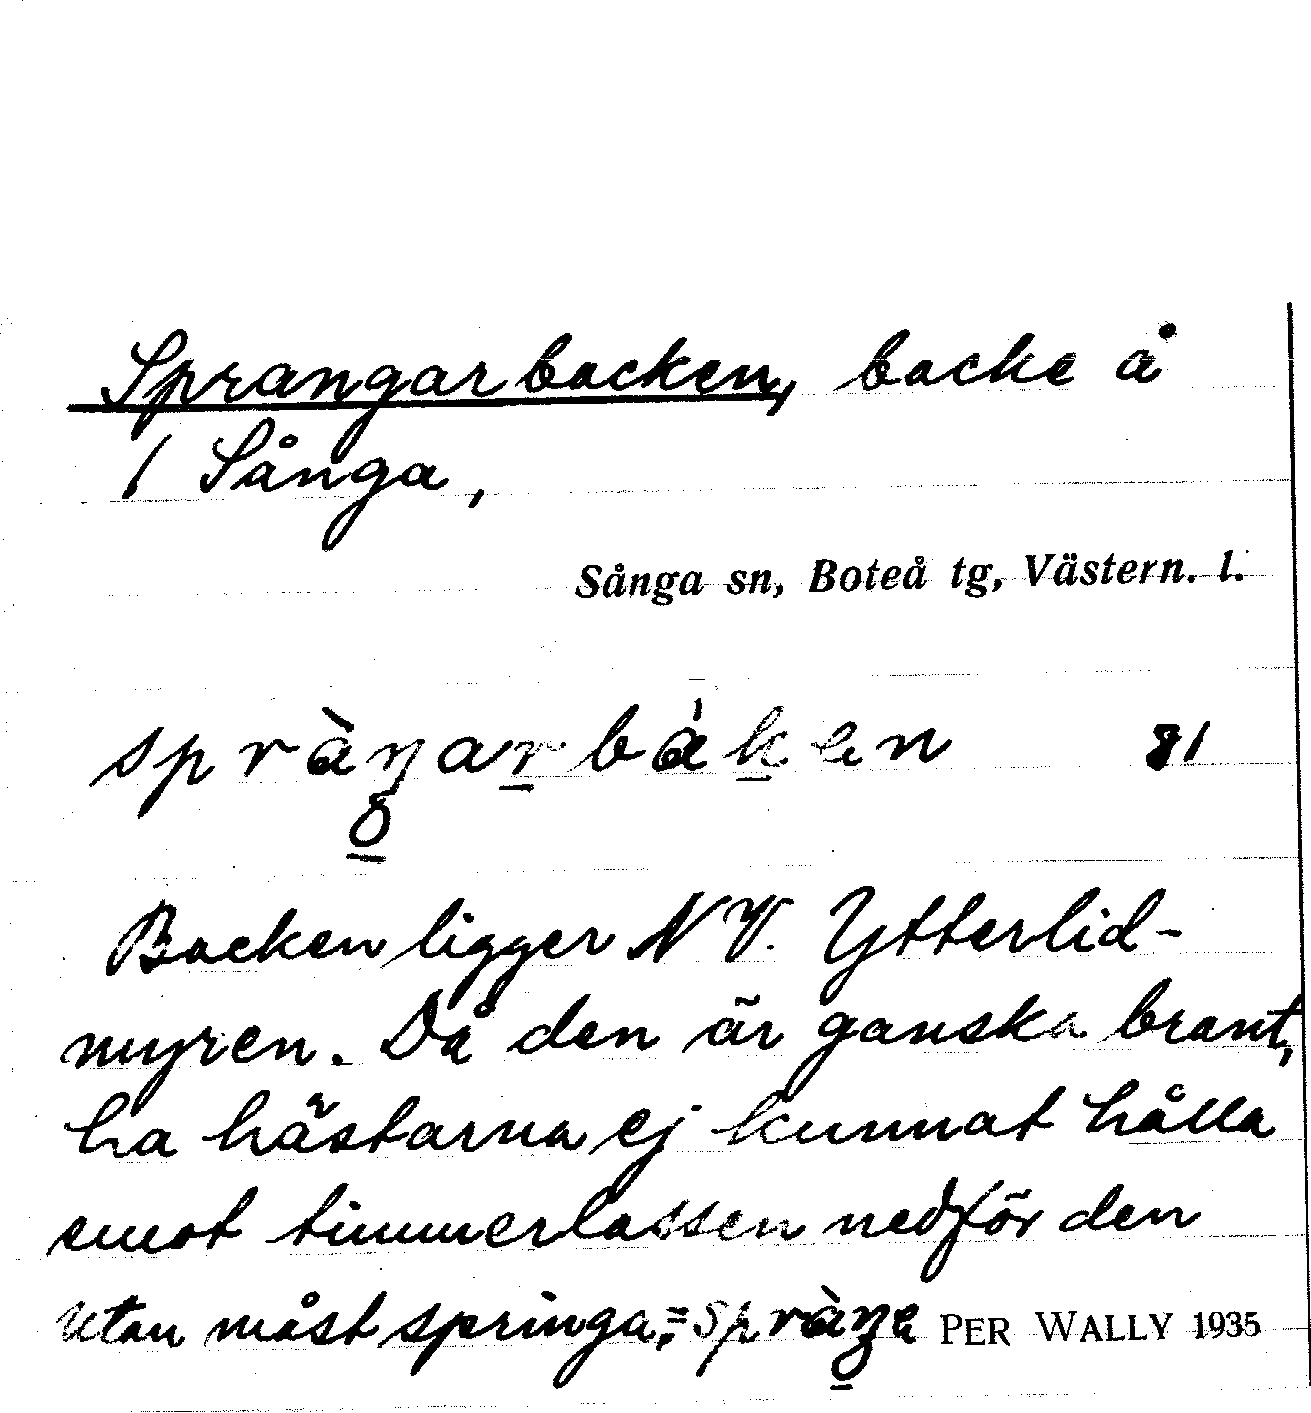 Sprangarbacken, backe å
1 Sånga,
Sånga sn, Boteå tg, Västern. l.
spràŋarbáken 81
Backen ligger N V. Ytterlid-
myren. Då den är ganska brant,
ha hästarna ej kunnat hålla
emot timmerlassen nedför den
utan måst springa, = spràŋa PER WALLY 1935